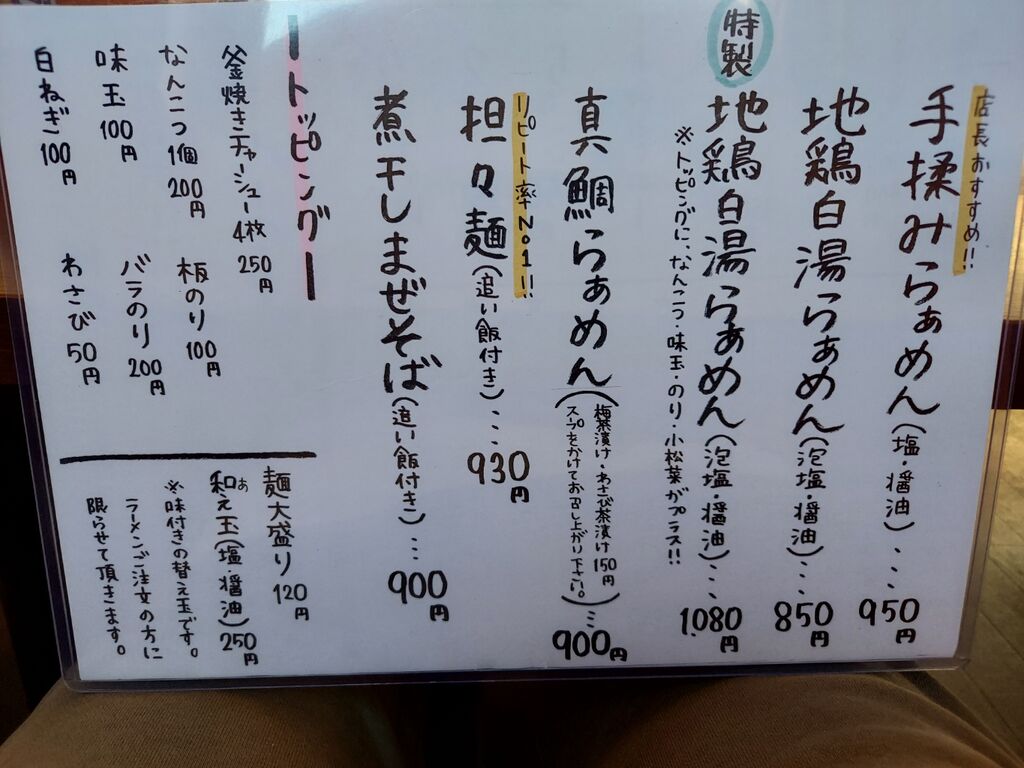 店長おすすめ!!
手揉みらぁめん(塩・醤油)...950円
地鶏白湯らぁめん(泡塩・醤油)...850円
特製
地鶏白湯らぁめん(泡塩・醤油)...1080円
※トッピングに、なんこつ・味玉・のり・小松菜がプラス!!
真鯛らぁめん(梅茶漬け・わさび茶漬け150円
スープをかけてお召し上がり下さい。)...900円
リピート率No1!!
担々麺(追い飯付き)...930円
煮干しまぜそば(追い飯付き)...900円
ートッピングー
釜焼きチャーシュー4枚250円
なんこつ1個200円
味玉100円
白ねぎ100円
板のり100円
バラのり200円
わさび50円
麺大盛り120円
和え玉(塩・醤油)250円
あ
※味付きの替え玉です。
ラーメンご注文の方に
限らせて頂きます。